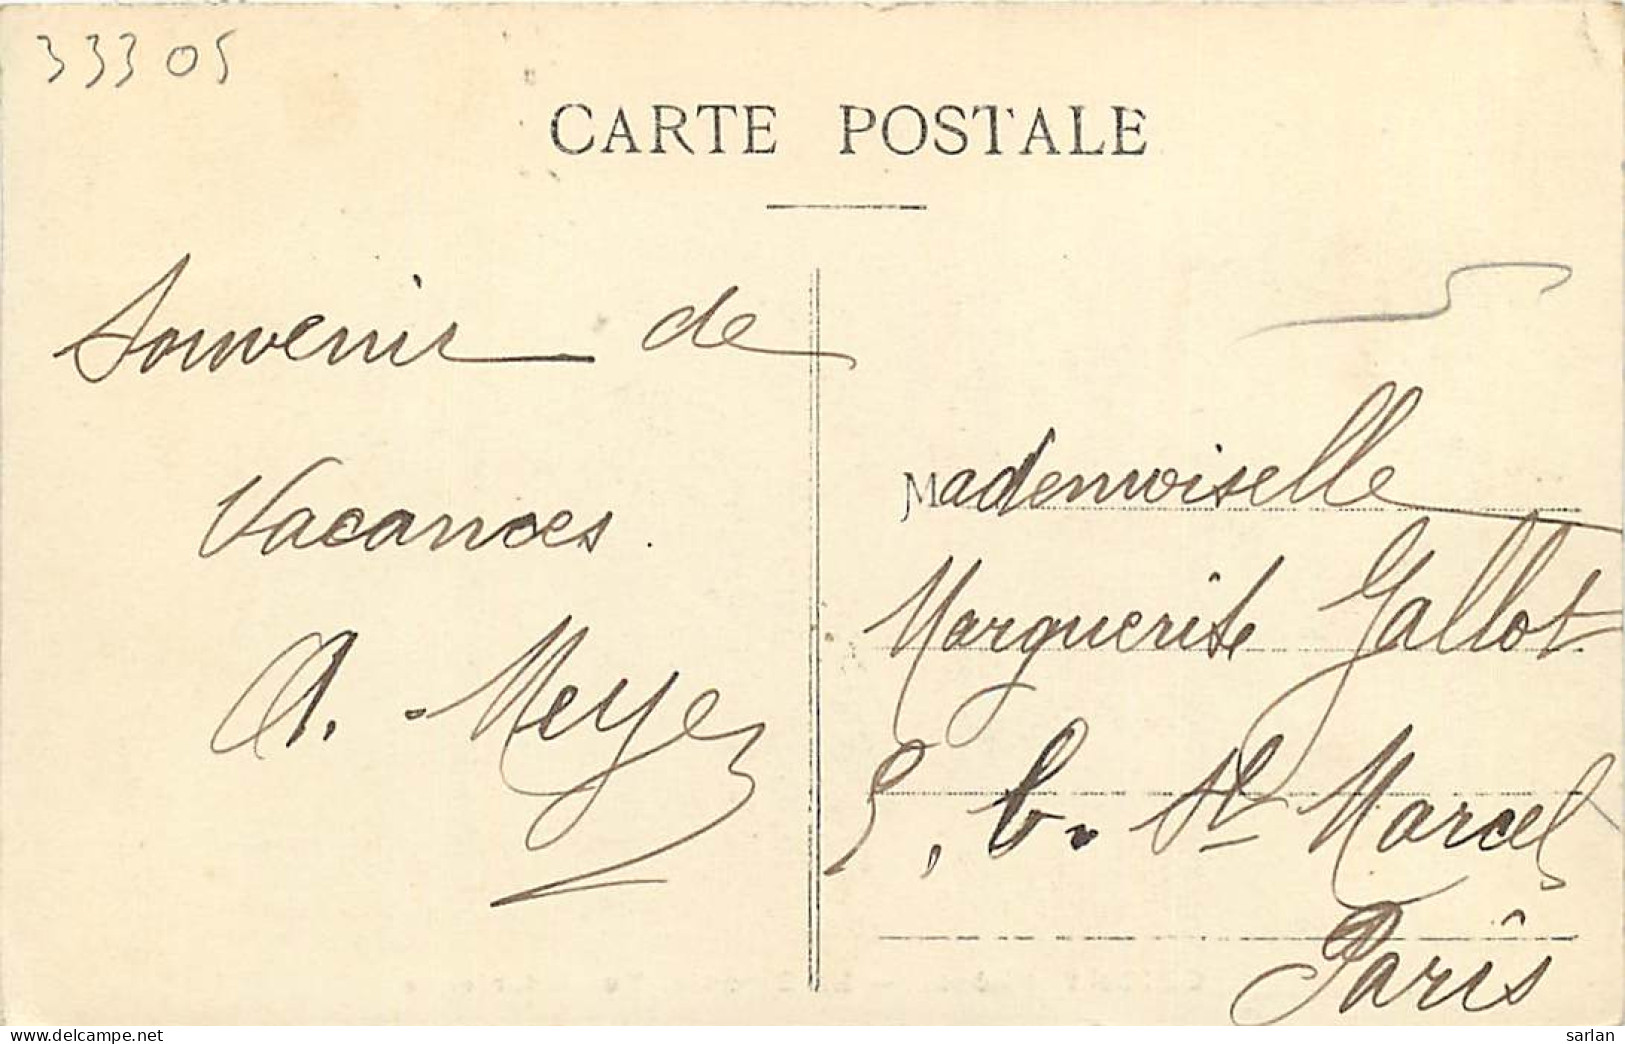 33305
CARTE POSTALE
Souvenir de
Vacances.
A. Meyer
Mademoiselle
Marguerite Gallot
5, b. St Marcel
Paris
sarlan